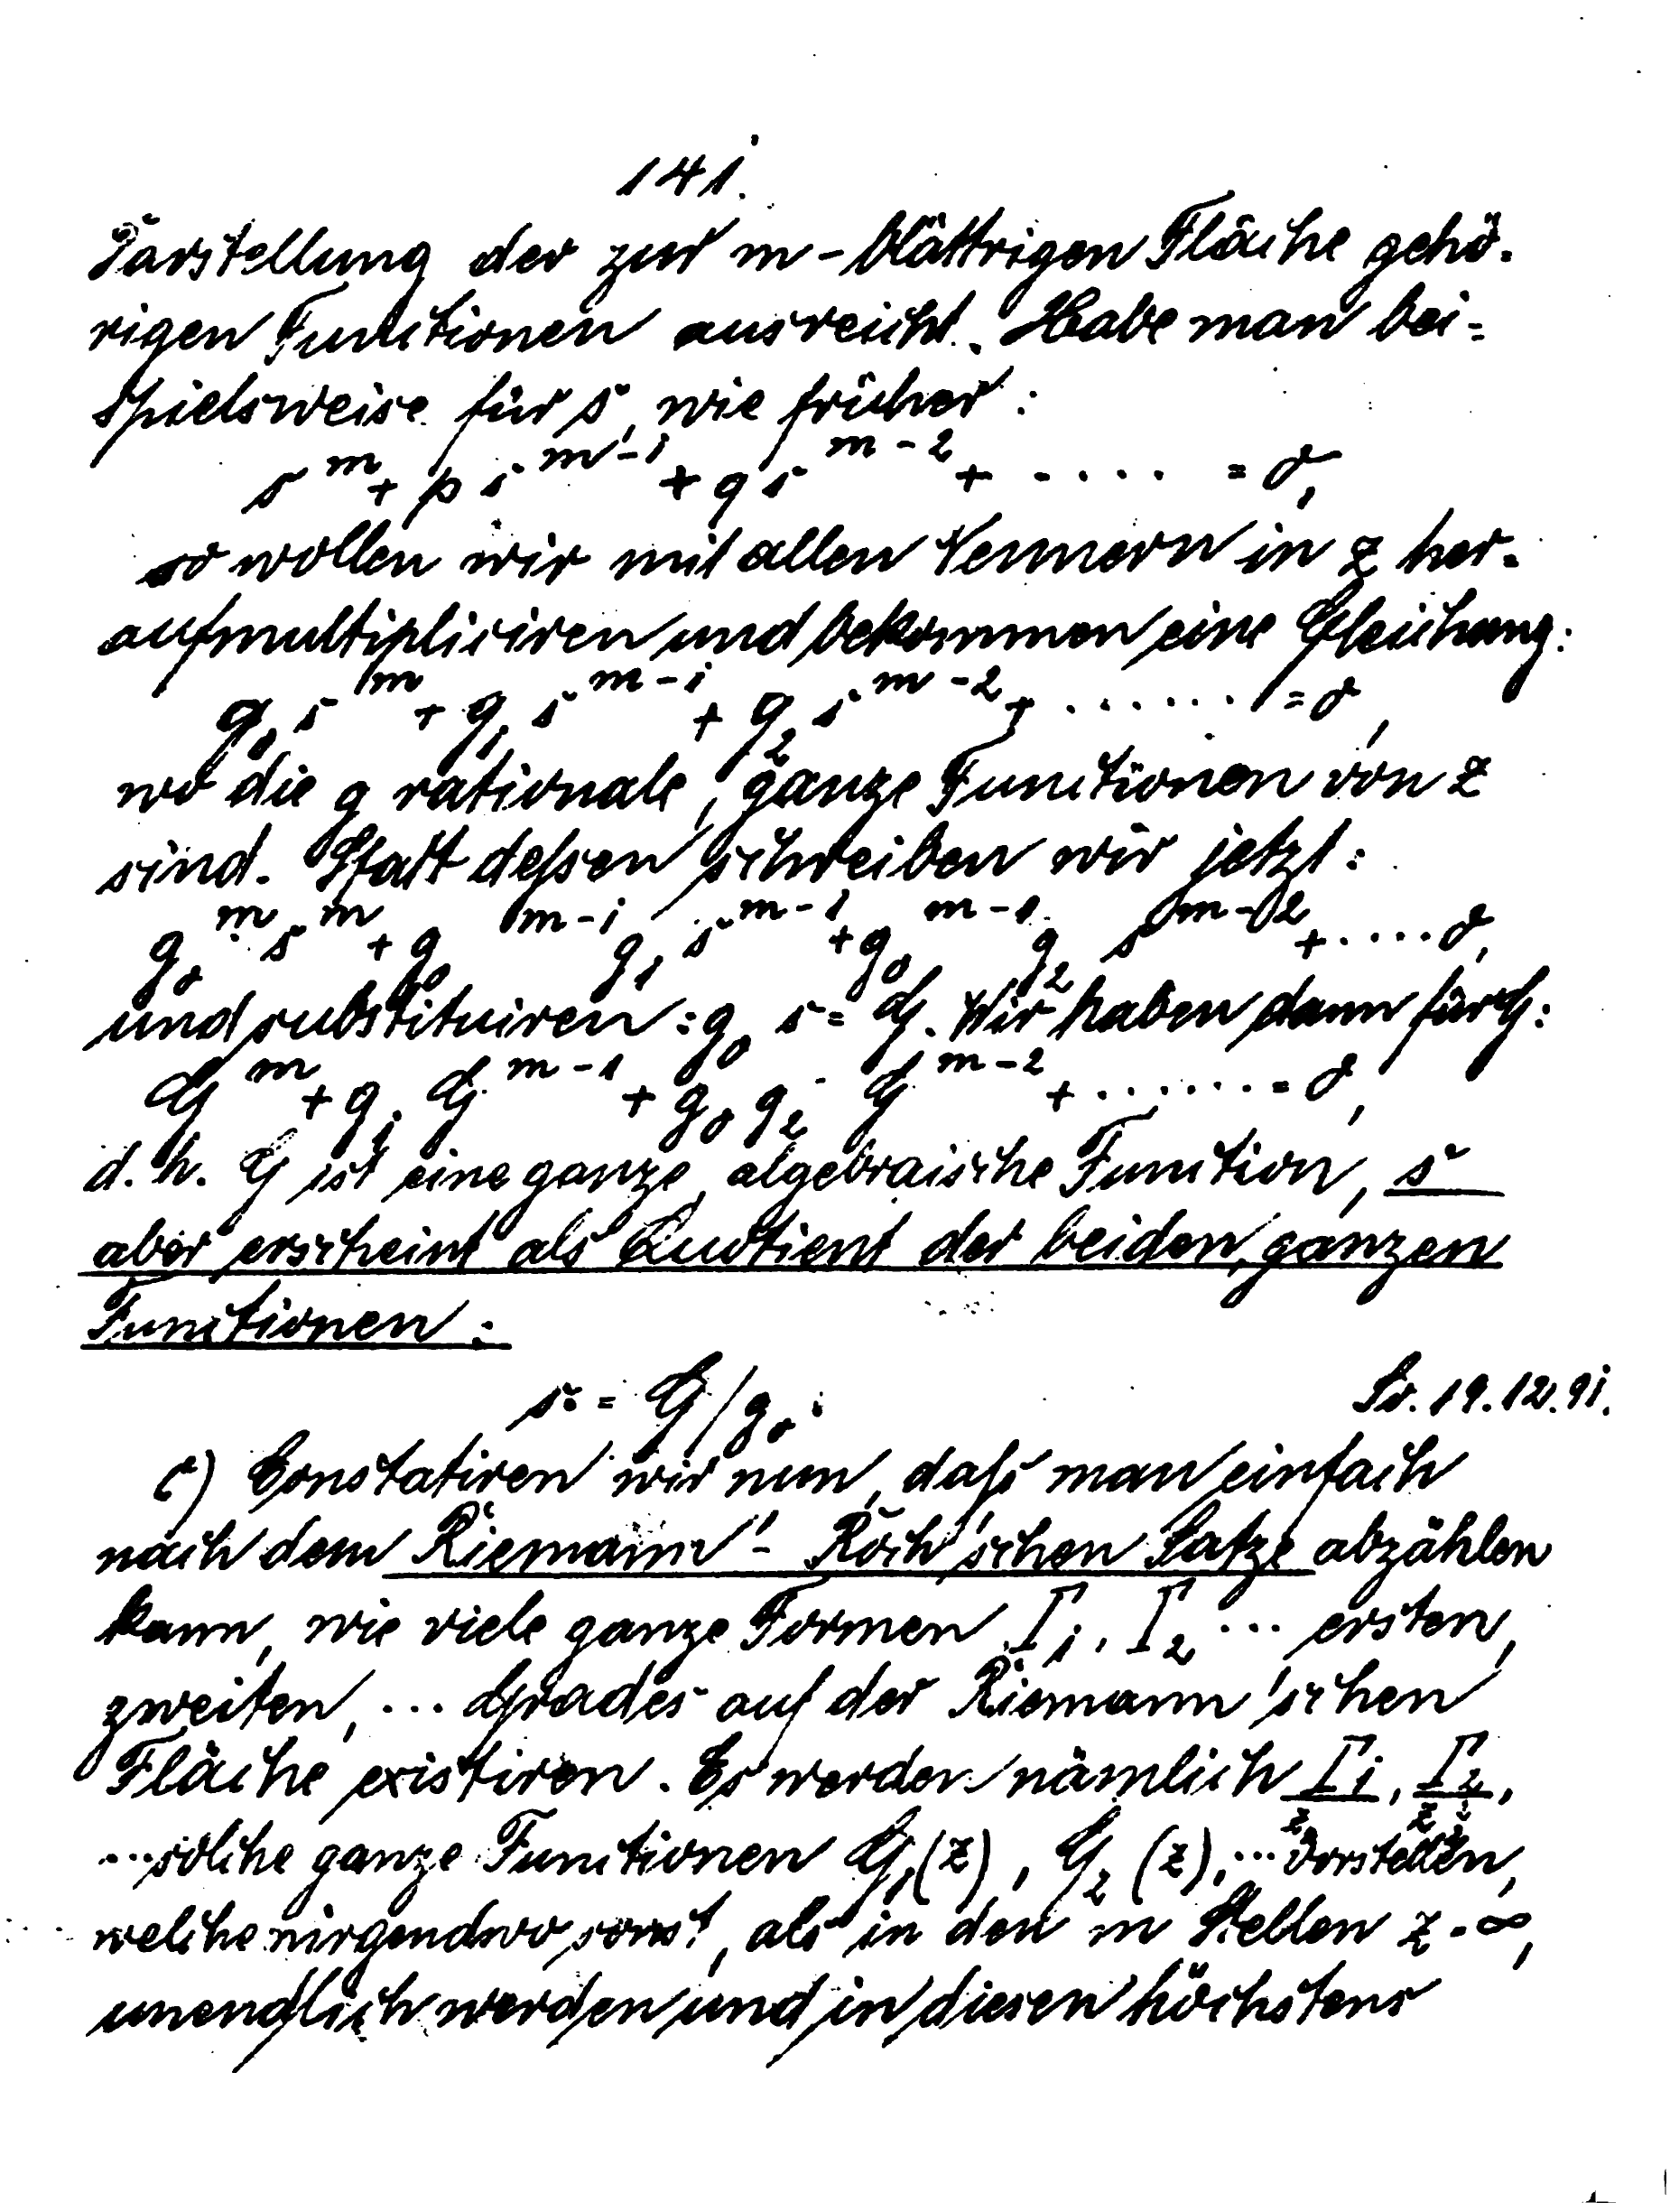 141.
Darstellung der zur m-blättrigen Fläche gehö-
rigen Functionen ausreicht. Habe man bei-
spielsweise für s, wie früher:
s^m + p s^{m-1} + q s^{m-2} + ..... = 0,
so wollen wir mit allen Nennern in z her-
aufmultipliciren und bekommen eine Gleichung:
g_0 s^m + g_1 s^{m-1} + g_2 s^{m-2} + ....... = 0,
wo die g rationale, ganze Functionen von z
sind. Statt deßen schreiben wir jetzt:
g_0^m s^m + g_0^{m-1} g_1 s^{m-1} + g_0^{m-1} g_2 s^{m-2} + .... 0,
und substituiren: g_0 s = G. Wir haben dann für G:
G^m + g_1 G^{m-1} + g_0 g_2 G^{m-2} + ....... = 0,
d. h. G ist eine ganze, algebraische Function, s
aber erscheint als Quotient der beiden, ganzen
Functionen:
s = G/g_0.
So. 19.12.91.
c) Constatiren wir nun, daß man einfach
nach dem Riemann'-Roch'schen Satze abzählen
kann, wie viele ganze Formen Γ_1, Γ_2 ... ersten,
zweiten, ... Grades auf der Riemann'schen
Fläche existiren. Es werden nämlich Γ_1/z_2, Γ_2/z_2^2,
...solche ganze Functionen G_1(z), G_2(z), ... vorstellen,
welche nirgendwo sonst, als in den m Stellen z = ∞,
unendlich werden und in diesen höchstens